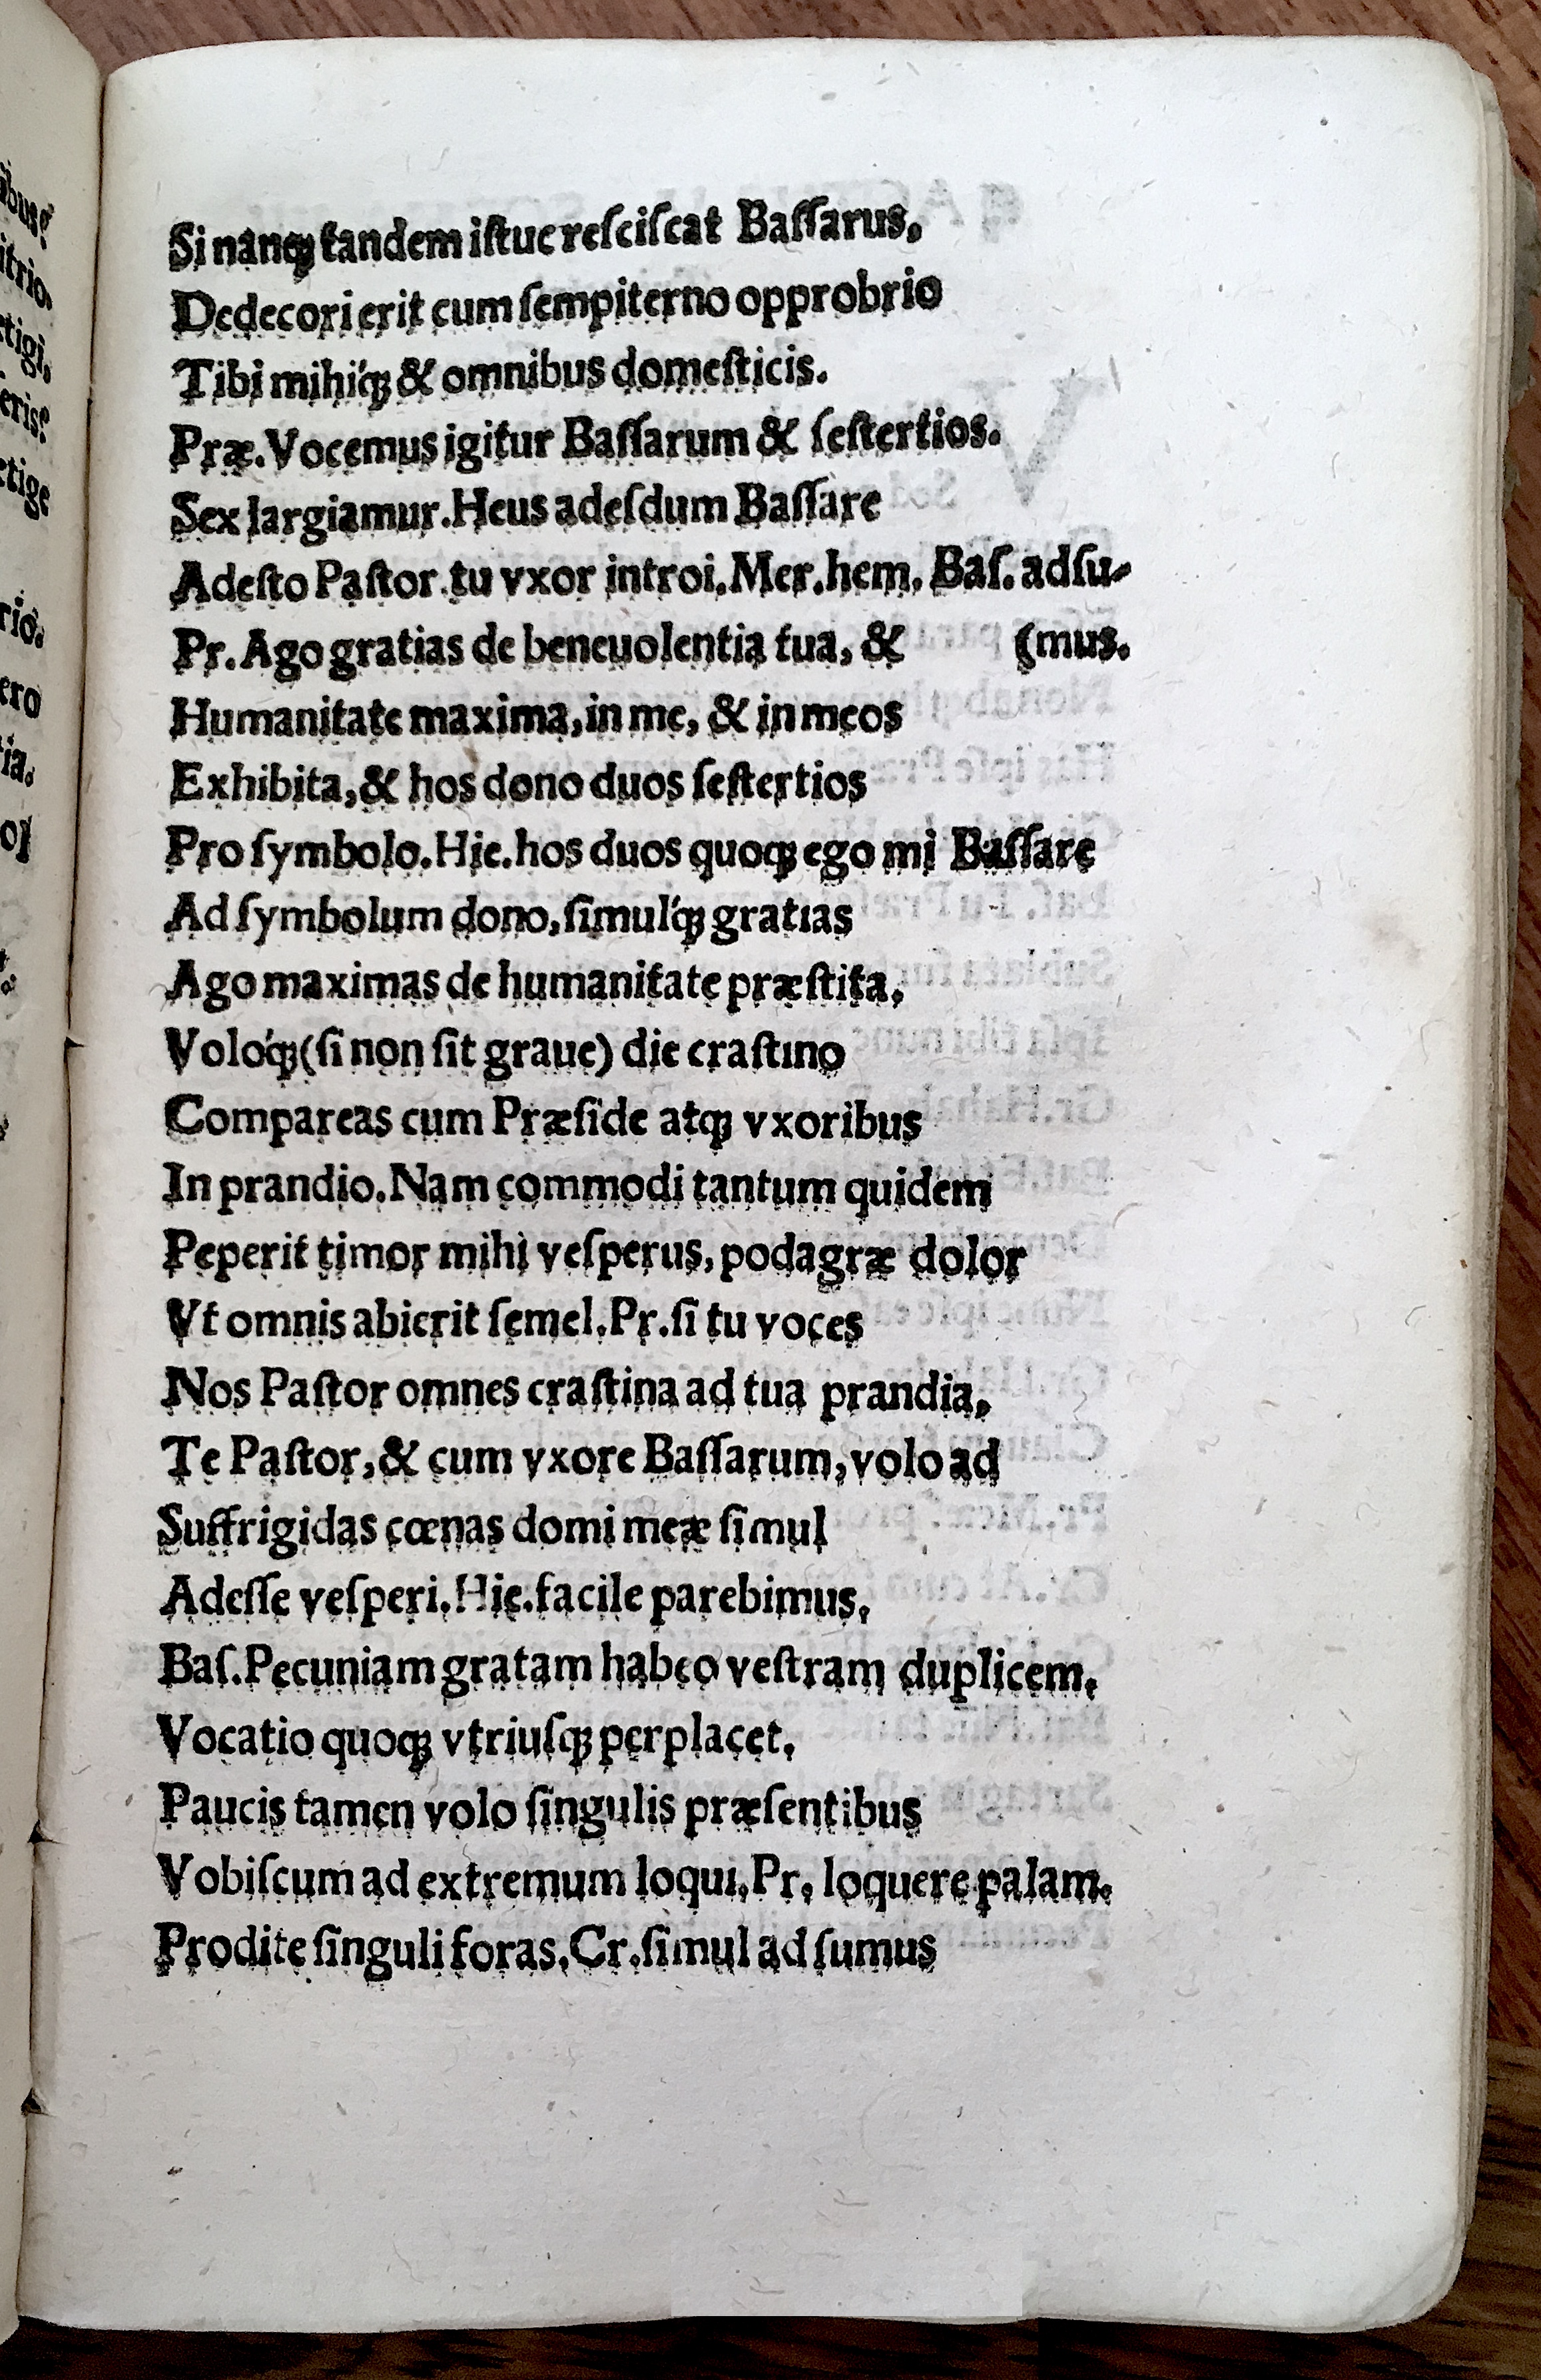 Si nanqꝫ tandem iſtuc reſciſcat Baſſarus,
Dedecori erit cum ſempiterno opprobrio
Tibi mihi'qꝫ & omnibus domeſticis.
Præ. Vocemus igitur Baſſarum & ſeſtertios.
Sex largiamur. Heus adeſdum Baſſare
Adeſto Paſtor tu vxor introi. Mer. hem. Baſ. adſu-
Pr. Ago gratias de beneuolentia tua, & (mus.
Humanitate maxima, in me, & in meos
Exhibita, & hos dono duos ſeſtertios
Pro ſymbolo. Hie. hos duos quoqꝫ ego mi Baſſare
Ad ſymbolum dono, ſimul'qꝫ gratias
Ago maximas de humanitate præſtita,
Volo'qꝫ (ſi non ſit graue) die craſtino
Compareas cum Præſide atqꝫ vxoribus
In prandio. Nam commodi tantum quidem
Peperit timor mihi veſperus, podagræ dolor
Vt omnis abierit ſemel. Pr. ſi tu voces
Nos Paſtor omnes craſtina ad tua prandia,
Te Paſtor, & cum vxore Baſſarum, volo ad
Suffrigidas cœnas domi meæ ſimul
Adeſſe veſperi. Hie. facile parebimus,
Baſ. Pecuniam gratam habeo veſtram duplicem,
Vocatio quoqꝫ vtriuſqꝫ perplacet,
Paucis tamen volo ſingulis præſentibus
Vobiſcum ad extremum loqui, Pr, loquere palam.
Prodite ſinguli foras, Cr. ſimul ad ſumus